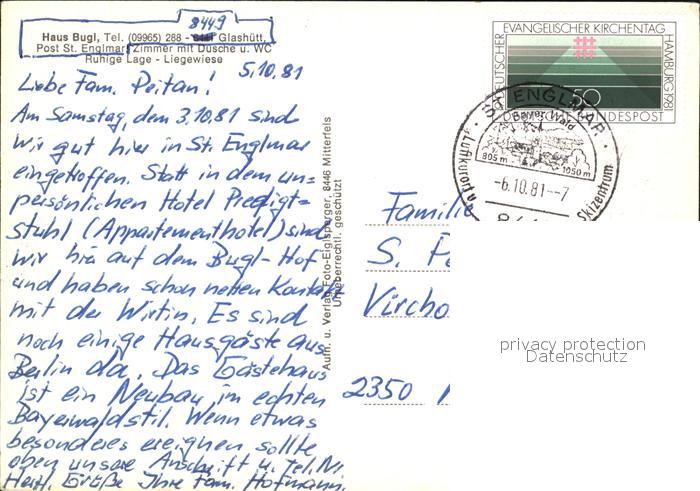 8449
Haus Bugl, Tel. (09965) 288 - 8441 Glashütt,
Post St. Englmar, Zimmer mit Dusche u. WC
Ruhige Lage - Liegewiese
5.10.81
Liebe Fam. Peitan!
Am Samstag, dem 3.10.81 sind
wir gut hier in St. Englmar
eingetroffen. Statt in dem un=
persönlichen Hotel Predigt=
stuhl (Appartementhotel) sind
wir hier auf dem Bugl-Hof
und haben schon netten Kontakt
mit der Wirtin. Es sind
noch einige Hausgäste aus
Berlin da. Das Gästehaus
ist ein Neubau im echten
Bayerwaldstil. Wenn etwas
besonderes ereignen sollte
oben unsere Anschrift u. Tel. Nr.
Herzl. Grüße Ihre Fam. Hofmann.
Aufn. u. Verlag Foto-Eiglsperger, 8446 Mitterfels
Urheberrechtl. geschützt
DEUTSCHER EVANGELISCHER KIRCHENTAG HAMBURG 1981
50
DEUTSCHE BUNDESPOST
ST. ENGLMAR
Bayer. Wald
805 m 1050 m
Luftkurort
Skizentrum
-6.10.81--7
Familie
S. Pe
Vircho
2350
privacy protection
Datenschutz